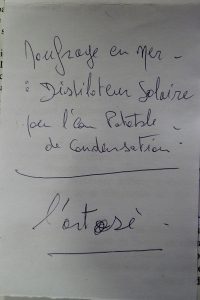 Naufrage en mer -
: Distilateur Solaire
par l'eau Potable -
de condensation.
l'ar